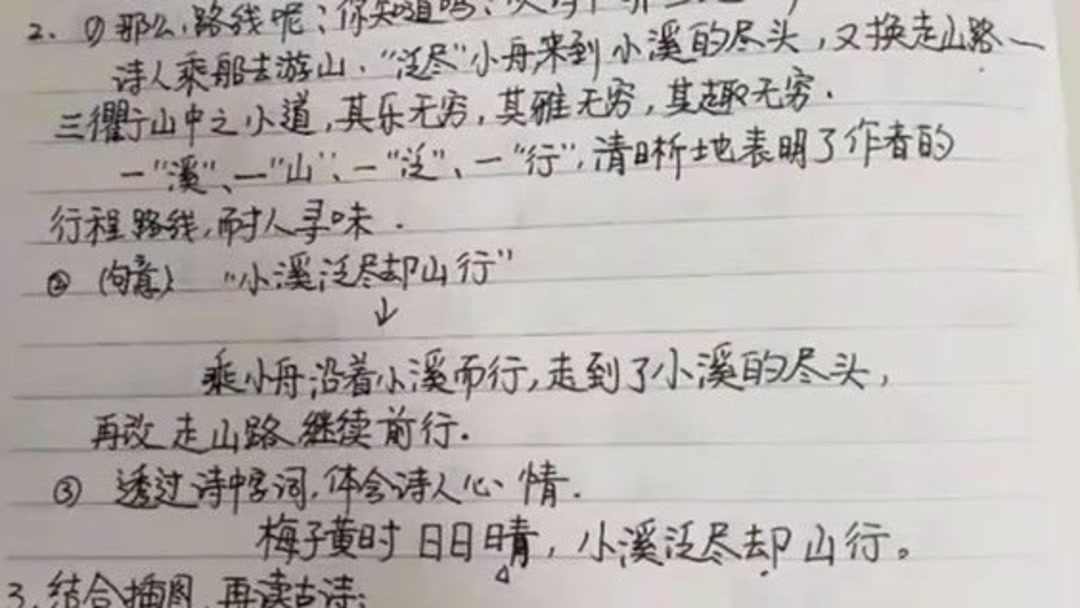 2. ① 那么,路线呢;你知道吗、
诗人乘船去游山."泛尽"小舟,来到小溪的尽头,又换走山路一
三衢于山中之小道,其乐无穷,其雅无穷,其趣无穷.
一"溪"、一"山"、一"泛"、一"行",清晰地表明了作者的
行程路线,耐人寻味.
② (句意) "小溪泛尽却山行"
↓
乘小舟沿着小溪而行,走到了小溪的尽头,
再改走山路继续前行.
③ 透过诗中字词,体会诗人心情.
梅子黄时日日晴,小溪泛尽却山行。
3.结合插图,再读古诗;